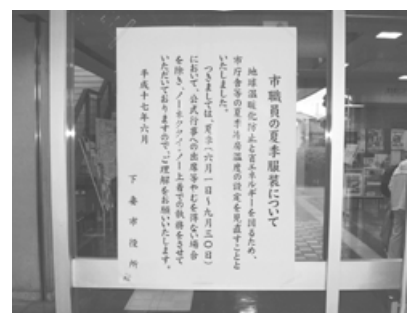 市職員の夏季服装について
地球温暖化防止と省エネルギーを図るため、
市庁舎等の夏季冷房温度の設定を見直すことと
いたしました。
つきましては、夏季(六月一日~九月三〇日)
において、公式行事への出席等やむを得ない場合
を除き、ノーネクタイ・ノー上着での執務をさせて
いただいておりますので、ご理解をお願いいたします。
平成十七年六月
下妻市役所